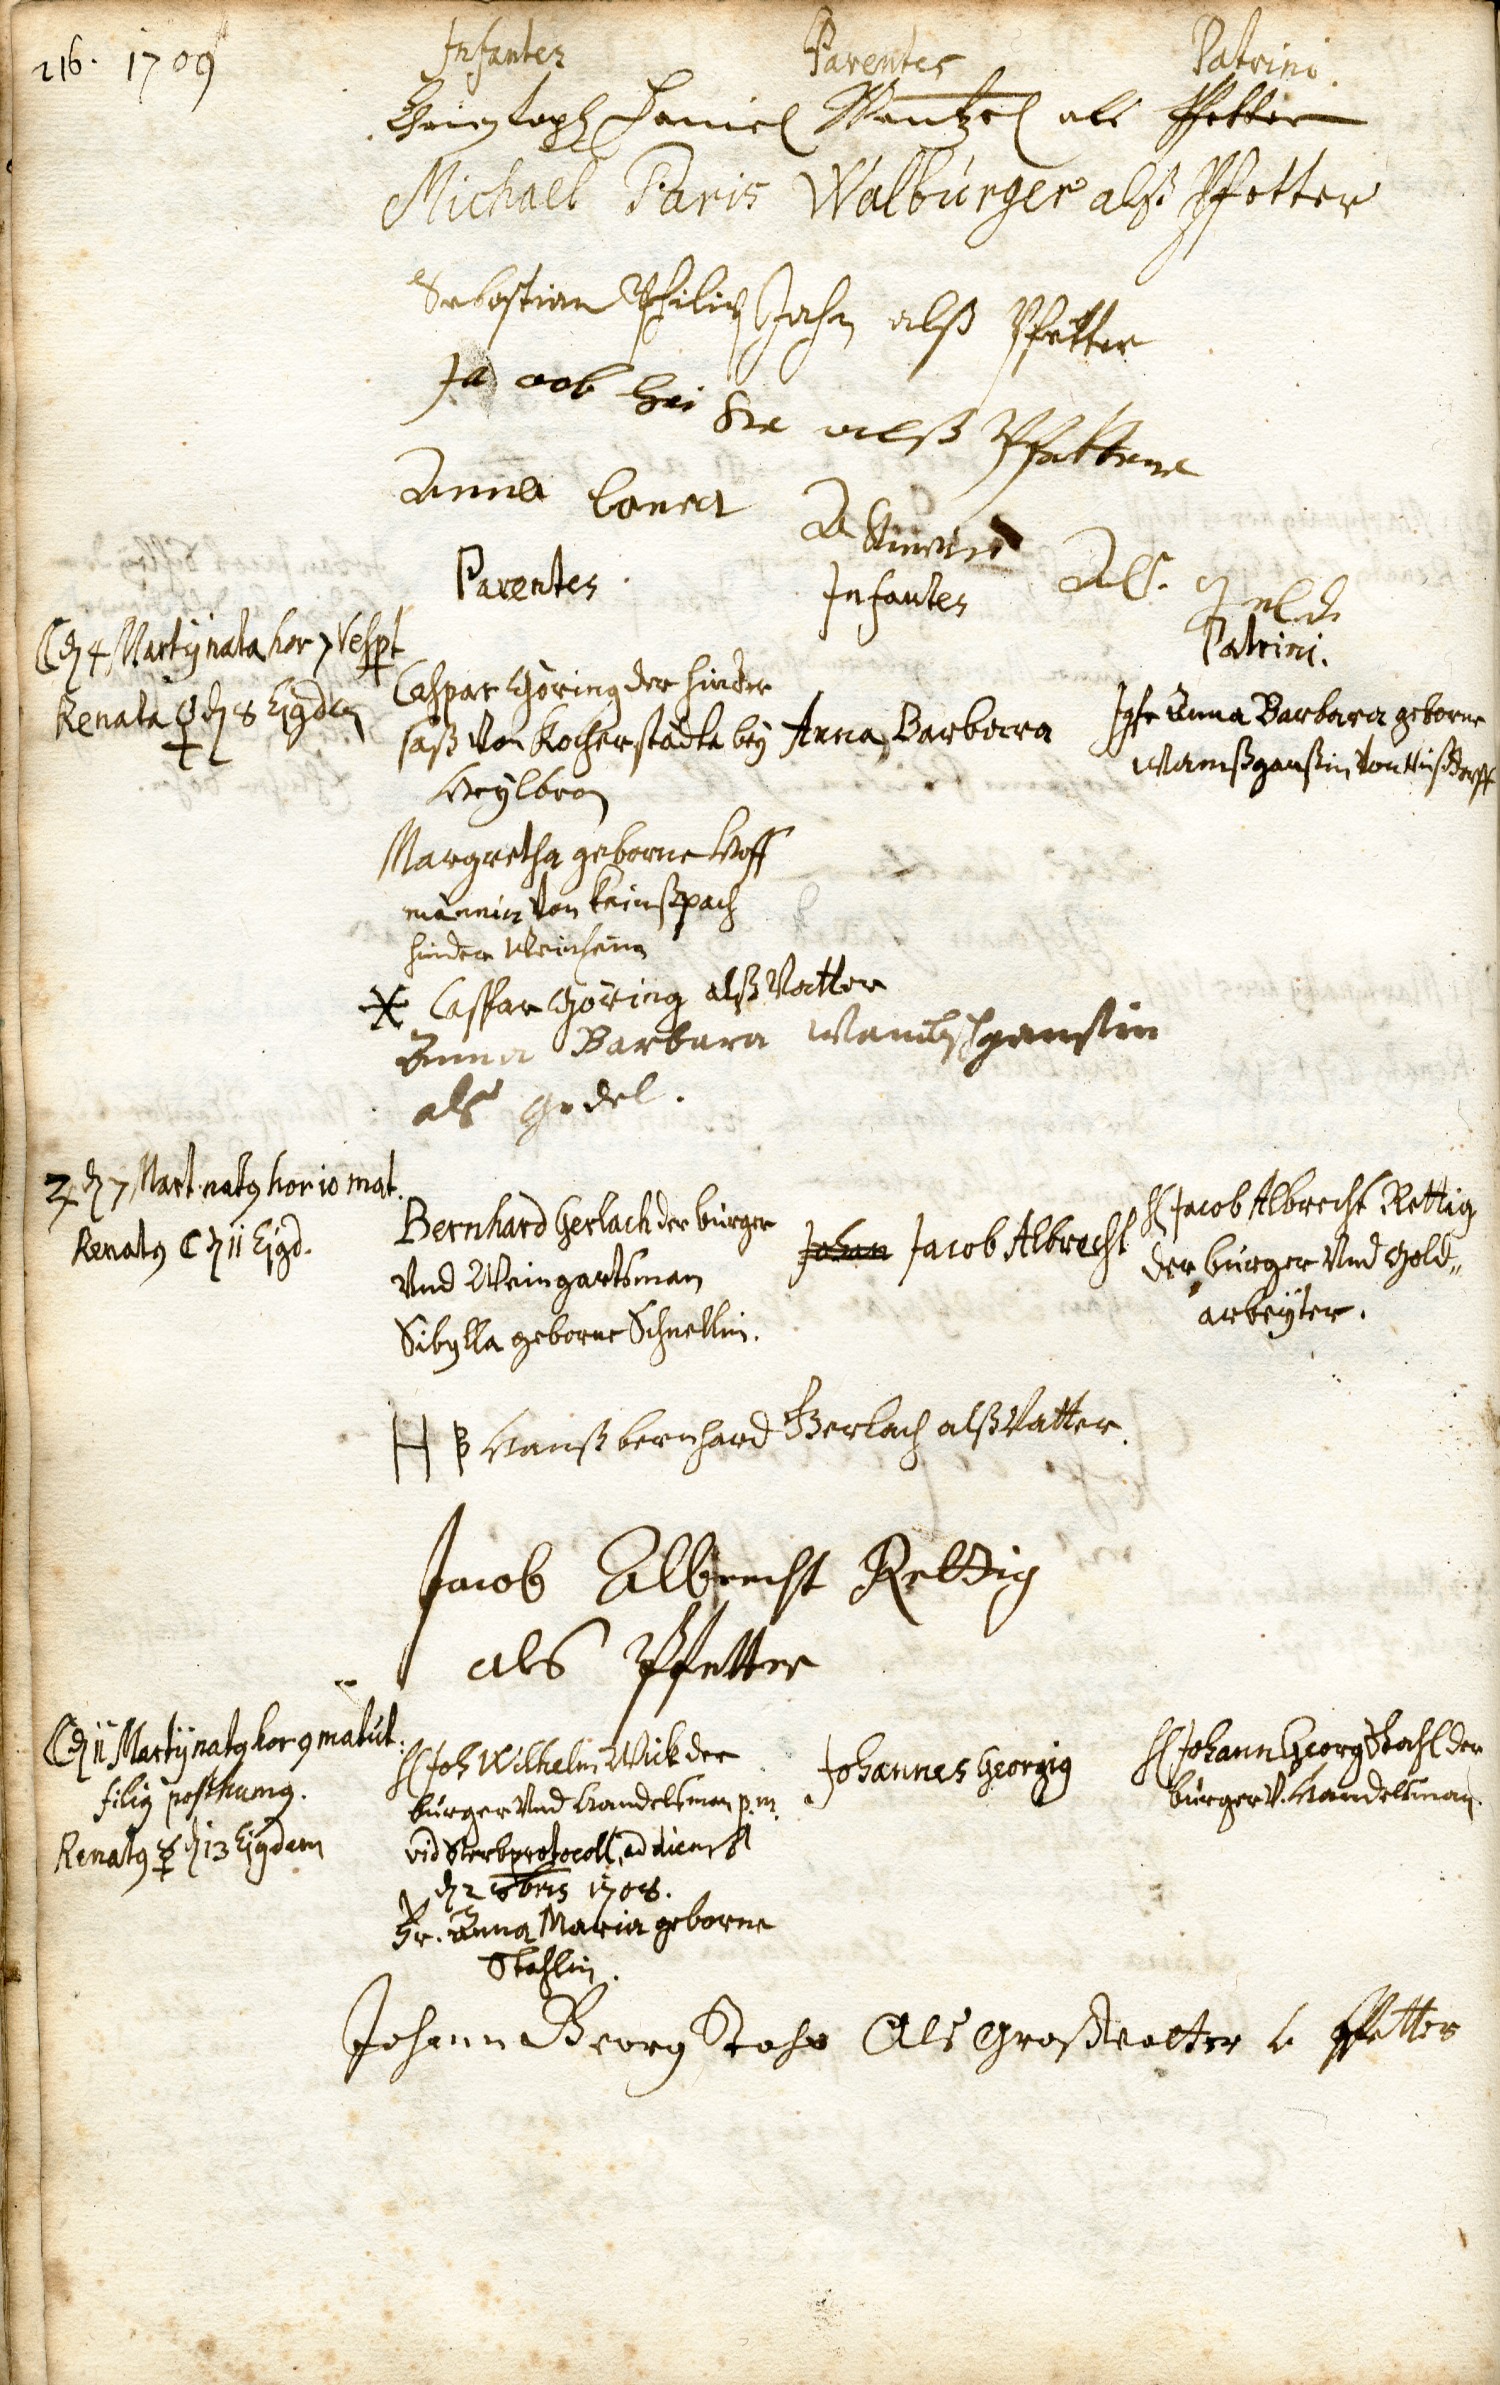 216. 1709
Infantes Parentes Patrini.
Christoph Daniel Wentzel als Pfetter
Michael Paris Walburger alß Pfetter
Sebastian Philip Jahn alß Pfetter
Jacob alß Pfetter
Anna
Als Gedel
Parentes. Infantes Patrini.
☾ d 4 Martij nata hor 7 Vespt
Renata ☿ d 8 Ejgdem
Caspar Göring der hinder
saß von Kocherstädta bey
Heylbron
Margretha geborne Hoff
männin von
hinder Weinheim
Anna Barbara
Jgfr Anna Barbara geborne
Wamßganßin von
Caspar Göring alß Vatter
Anna Barbara Wambsgansin
als Gedel.
♃ d 7 Mart. natg hor 10 mat.
Renatg ☾ d 11 Ejgd.
Bernhard Gerlach der burger
und Weingartsman
Sibylla geborne Schnellin.
Johan Jacob Albrecht
H Jacob Albrecht Rettig
der burger und Gold„
arbeyter.
H B Hanß bernhard Gerlach alß Vatter.
Jacob Albrecht Rettig
als Pfetter
☾ d 11 Martij natg hor 9 matut:
filig posthumg.
Renatg ☿ d 13 Ejgdem
H Joh Wilhelm Wick der
burger und Handelsman p.m.
vid Sterbprotocoll ad diem
d 2 8bris 1708.
Fr. Anna Maria geborne
Stahlin.
Johannes Georgig
H Johann Georg Stahl der
burger V. Handelsman.
Johann Georg Stahl Als Großvatter u Pfetter